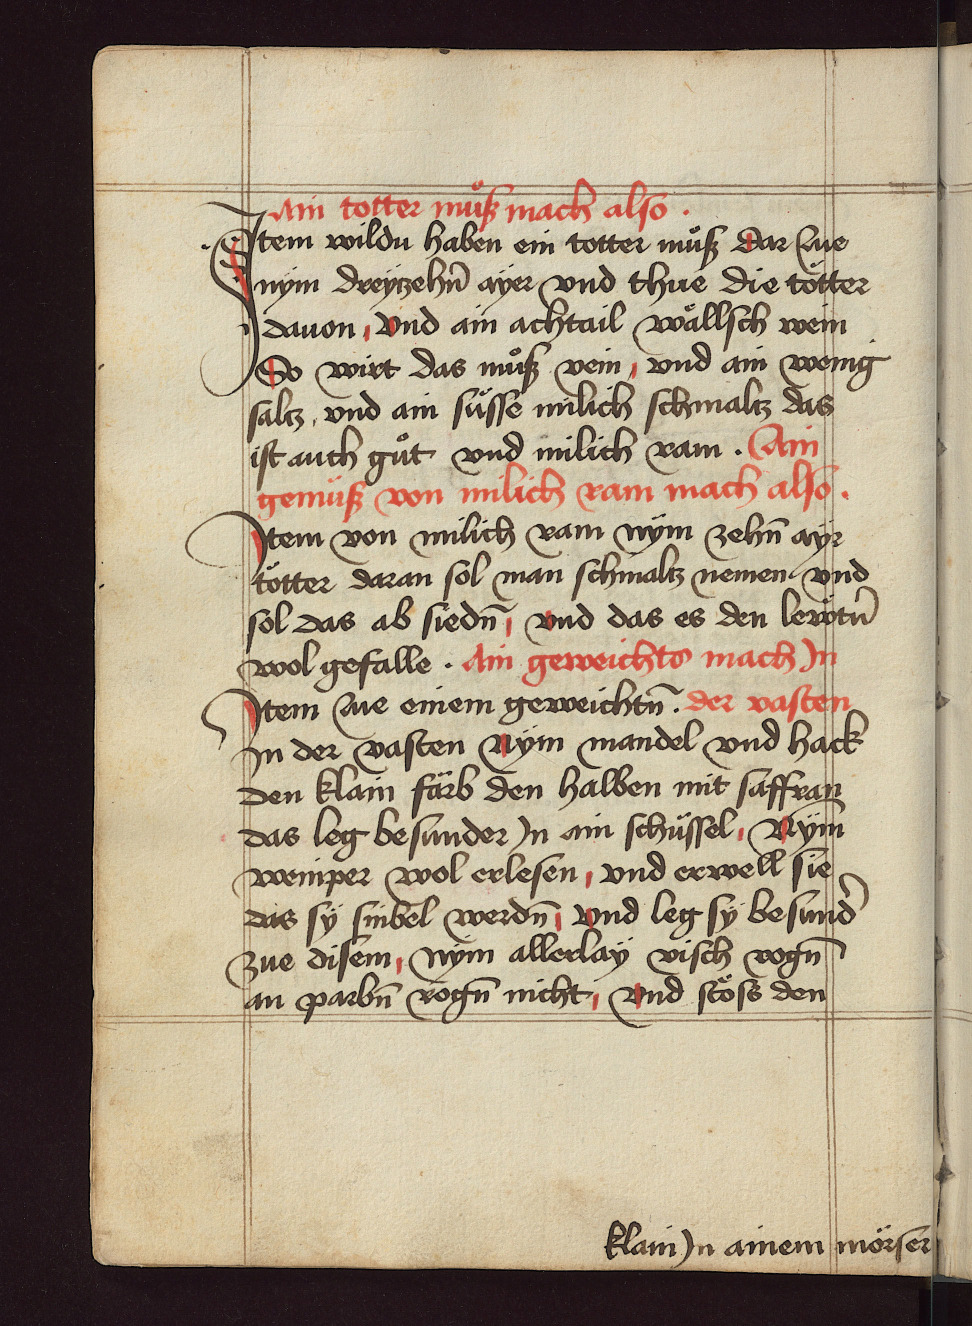 Ain totter muͦß mach also .
Item wildu haben ein totter muͦß dar zue
nÿm dreÿtzehn̄ aÿer vnd thue die tötter
dauon , vnd ain achtail wällsch wein
So wirt das muͦß vein , vnd ain wenig
saltz , vnd ain süsse milich schmaltz das
ist auch guͦt vnd milich ram . Ain
gemüß von milich ram mach also .
Item von milich ram nÿm zehn̄ aÿr
tötter daran sol man schmaltz nemen vnd
sol das ab siedn̄ , vnd das es den lewtn̄
wol gefalle . Ain geweichts mach Jn
Item zue einem geweichtn̄ . der vasten
Jn der vasten Nÿm mandel vnd hack
den klain färb den halben mit saffran
das leg besunder Jn ain schüssel , Nÿm
weinper wol erlesen , vnd erwell sie
das sÿ sinbel werdn̄ , vnd leg sÿ besund̉
zue disem , nÿm allerlaÿ visch rogn̄
an parbn̄ rogn̄ nicht , vnd stöss den
klain Jn ainem mörser